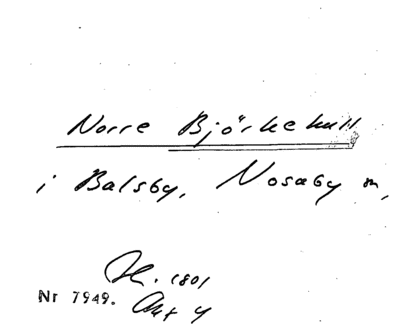 Norre Björkekull
i Balsby, Nosaby sn,
H. 1801
Nr 7949. Akt 4